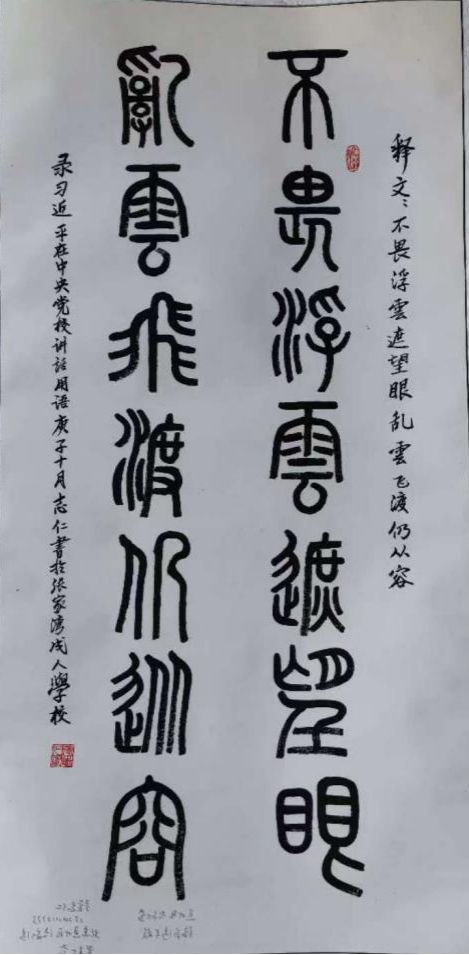 释文：不畏浮雲遮望眼乱雲飞渡仍从容
不畏浮雲遮望眼
亂雲飛渡仍從容
录习近平在中央党校讲话用语庚子十月志仁書於张家湾成人學校